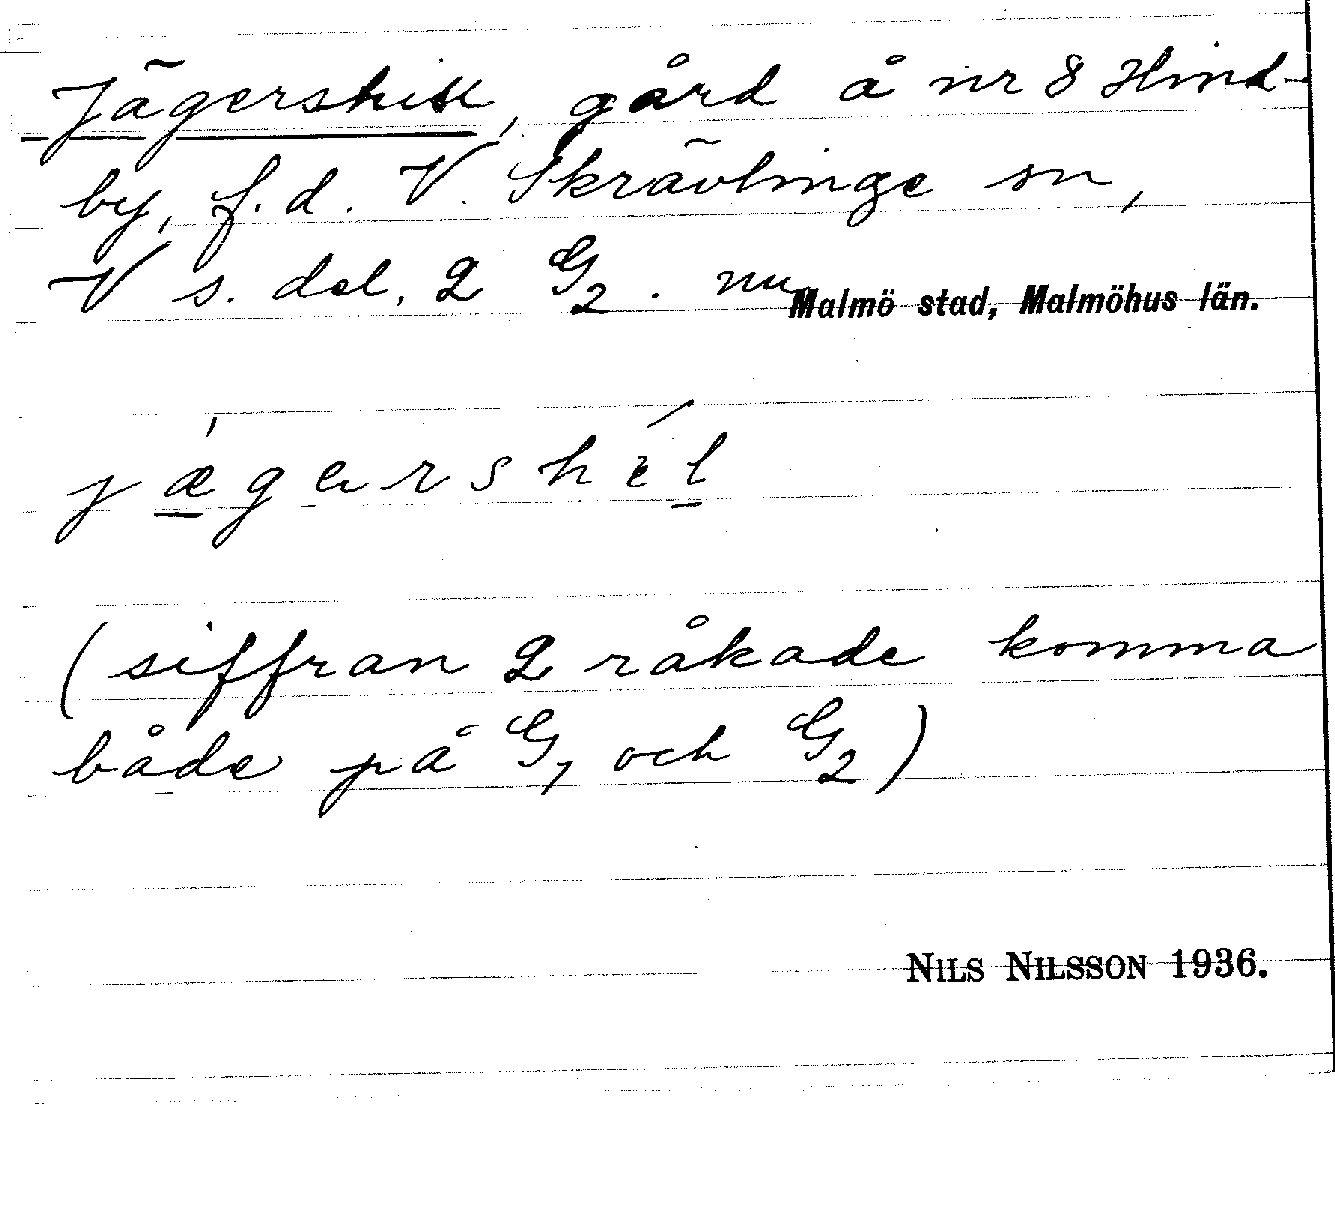 Jägershill, gård å nr 8 Hind-
by, f.d. V. Skrävlinge sn,
V s. del. 2 G2. nu Malmö stad, Malmöhus län.
jægershel
(siffran 2 råkade komma
både på G1 och G2)
NILS NILSSON 1936.